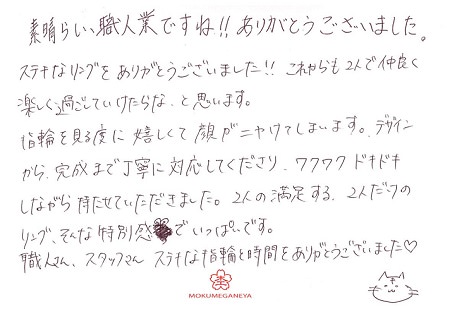 素晴らしい、職人業ですね!! ありがとうございました。
ステキなリングをありがとうございました!! これからも2人で仲良く
楽しく過ごしていけたらな、と思います。
指輪を見る度に嬉しくて顔がニヤけてしまいます。デザイン
から、完成まで丁寧に対応してくださり、ワクワクドキドキ
しながら待たせていただきました。2人の満足する、2人だけの
リング、そんな特別感でいっぱいです。
職人さん、スタッフさん ステキな指輪と時間をありがとうございました♡
MOKUMEGANEYA